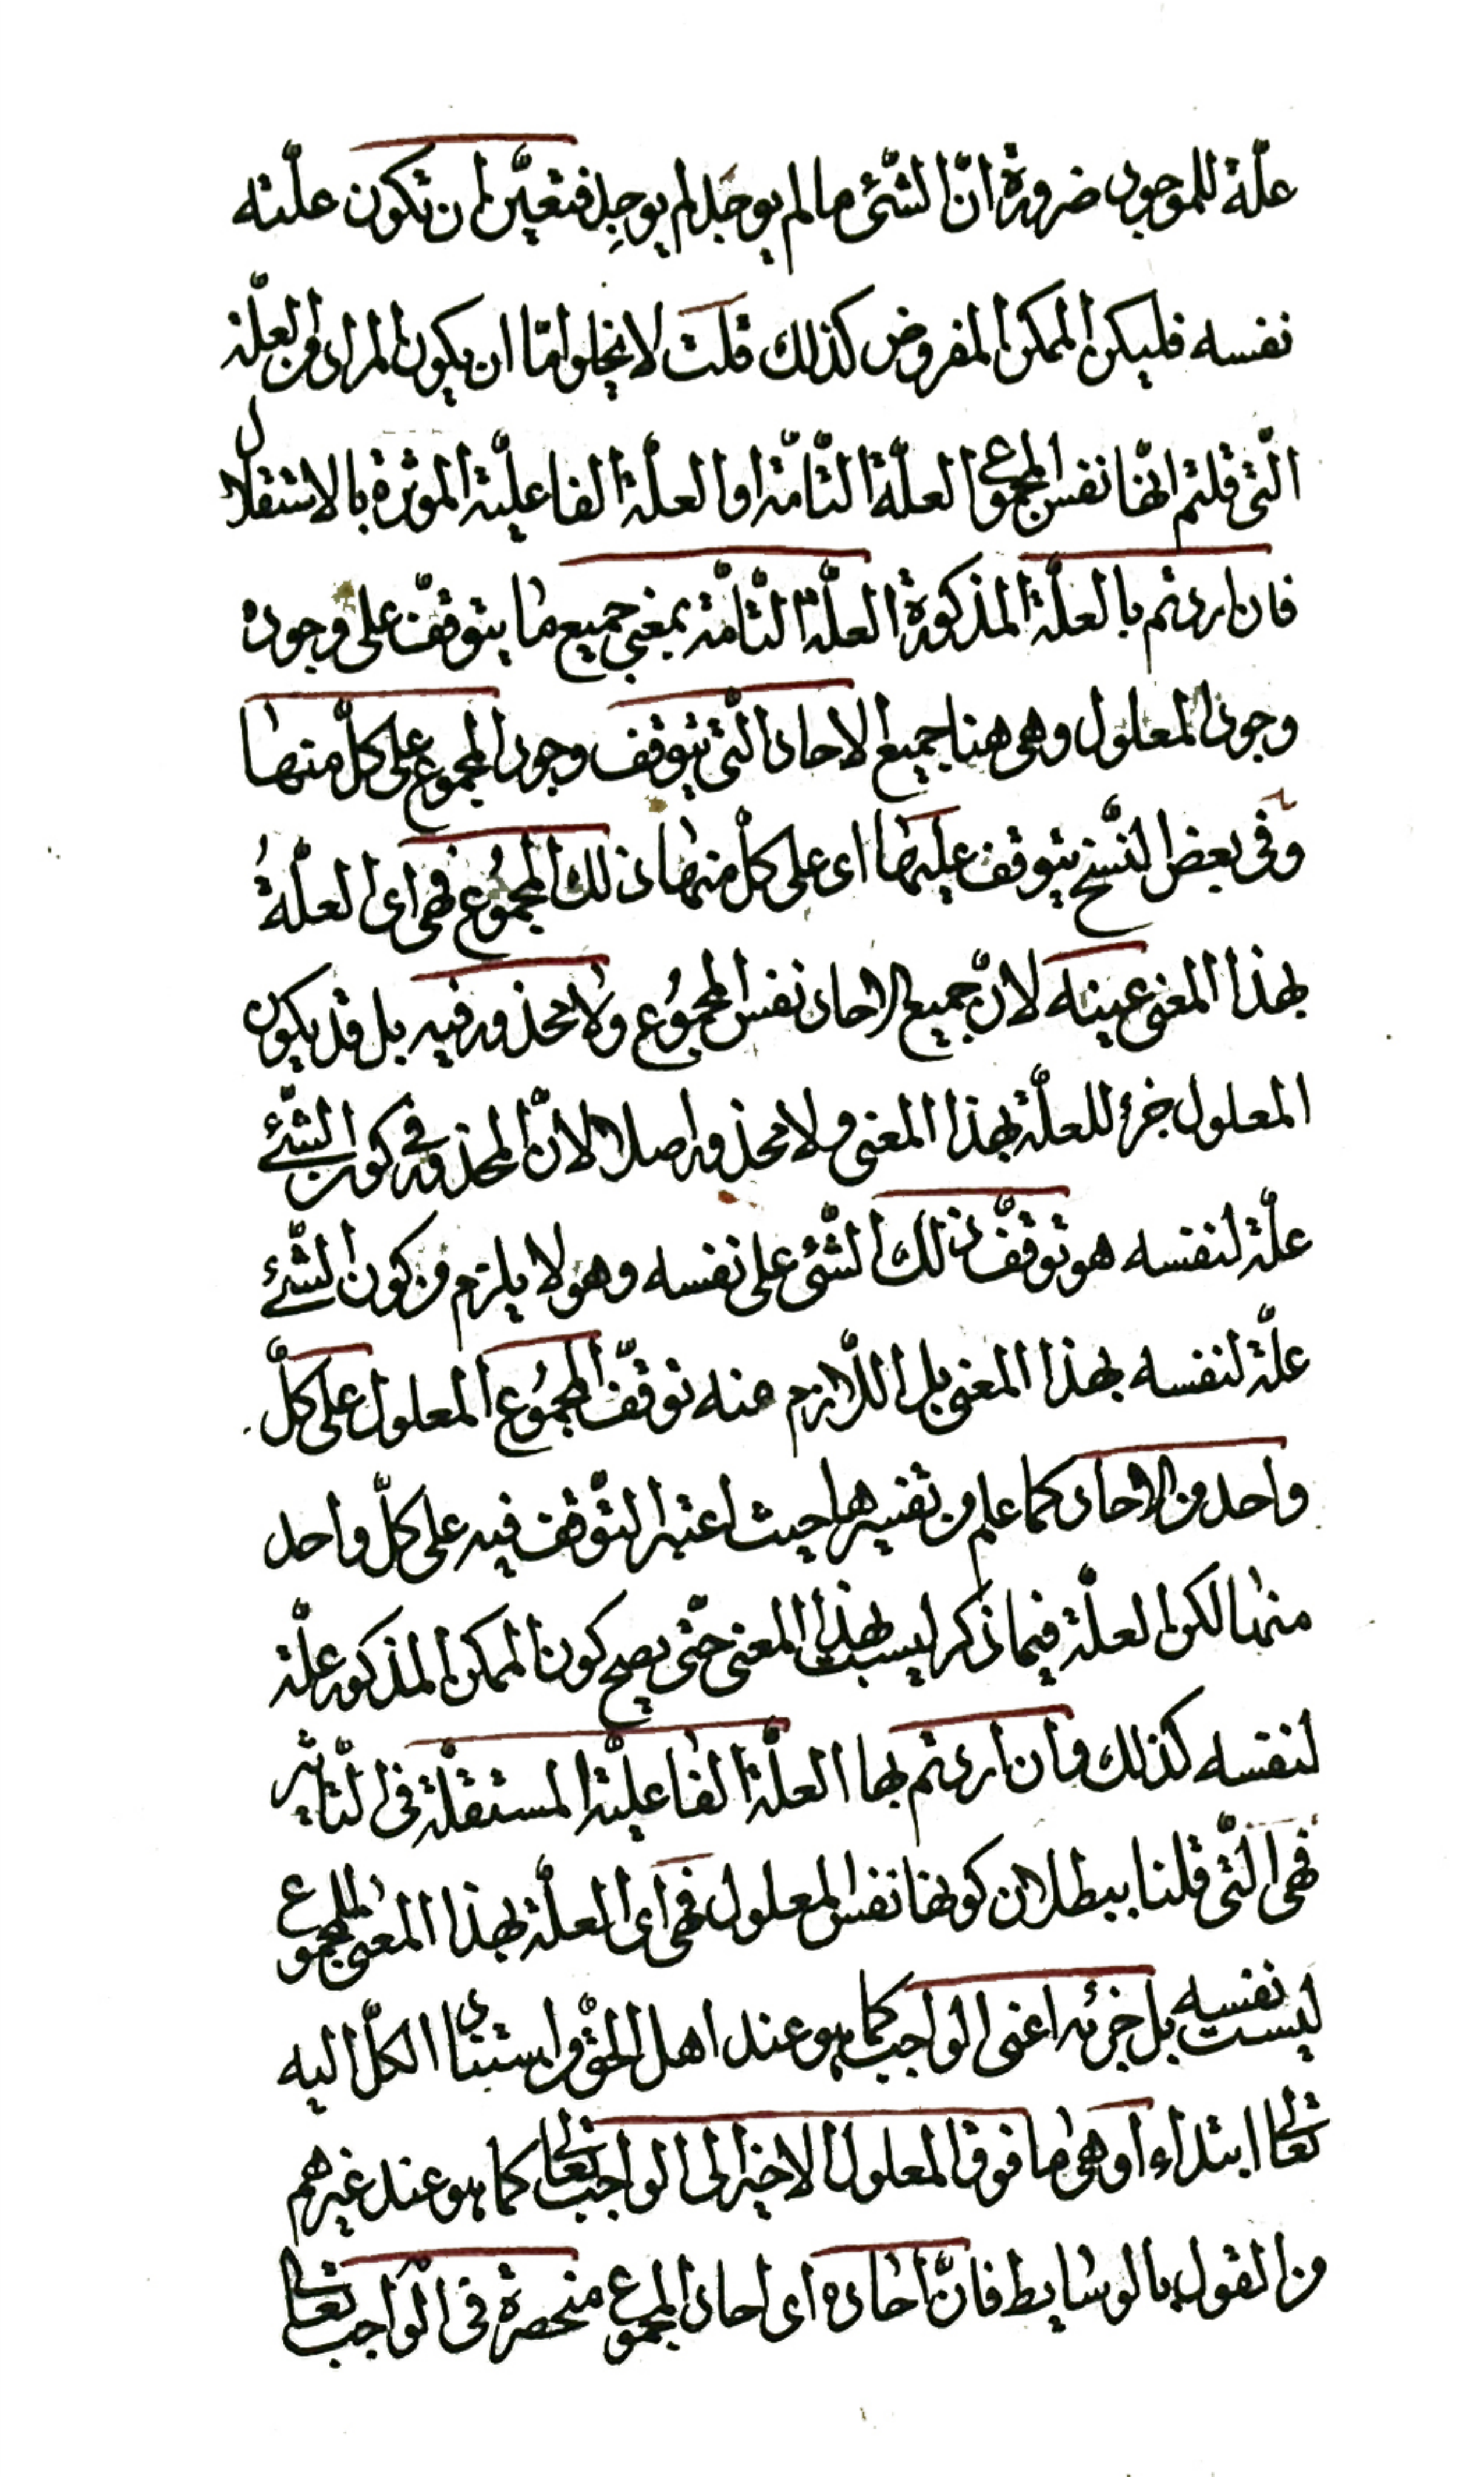 علّة للموجود ضرورة انّ الشّئ ما لم يوجَد لم يوجِد فتعيّن ان تكون علّته
نفسه فليكن الممكن المفروض كذلك قلت لا يخلو امّا ان يكون المراد من العلّة
الّتى قلتم انّها نفس المجموع العلّة التّامّة او العلّة الفاعليّة الموثرة بالاستقلال
فان اردتم بالعلّة المذكورة العلّة التّامّة بمعنى جميع ما يتوقّف على وجوده
وجود المعلول وهى هنا جميع الاحاد الّتى يتوقف وجود المجموع على كلّ منها
وفى بعض النّسخ يتوقف عليها اى على كلّ منها ذلك المجمُوع فهى اى العلّةُ
بهذا المعنى عينه لانّ جميع الاحاد نفس المجمُوع ولا محذور فيه بل قد يكون
المعلول جزء للعلّة بهذا المعنى ولا محذور اصلا لانّ المحذور فى كون الشّئ
علّة لنفسه هو توقّف ذلك الشّئ على نفسه وهو لا يلزم من كون الشّئ
علّة لنفسه بهذا المعنى بل اللّازم منه توقّف المجمُوع المعلول على كلّ
واحد من الاحاد كما علم من تفسيرها حيث اعتبر التّوقف فيه على كلّ واحد
منها لكن العلّة فيما ذكر ليست بهذا المعنى حتّى يصح كون الممكن المذكور علّة
لنفسه كذلك وان اردتم بها العلّة الفاعليّة المستقلّة فى التّاثير
فهى الّتى قلنا ببطلان كونها نفس المعلول فهى اى العلّة بهذا المعنى للمجموع
ليست نفسه بل جزئه اعنى الواجب كما هو عند اهل الحقّ من استناد الكلّ اليه
تعالى ابتداء او هى ما فوق المعلول الاخير الى الواجب تعالى كما هو عند غيرهم
من القول بالوسايط فانّ احاده اى احاد المجموع منحصرة فى الواجب تعالى